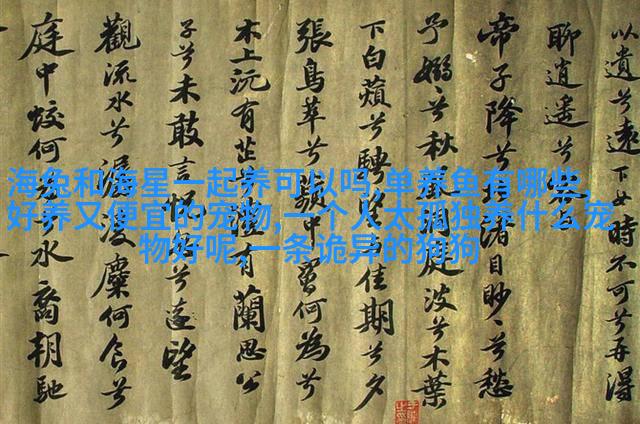 海兔和海星一起养可以吗,单养鱼有哪些,
好养又便宜的宠物,一个人太孤独养什么宠
物好呢,一条诡异的狗狗
以遺兮遠女時不可兮再得
聊逍遥兮
帝子降兮渚目眇〻兮愁
予嫋〻兮秋庭波兮木葉
下白蘋兮騁佳期兮夕
張鳥萃兮蘋中罾何為兮
木上沅有芷有蘭思公
子兮未敢言兮遠望
觀流水兮潺湲麋何食兮
庭中蛟何水裔朝馳